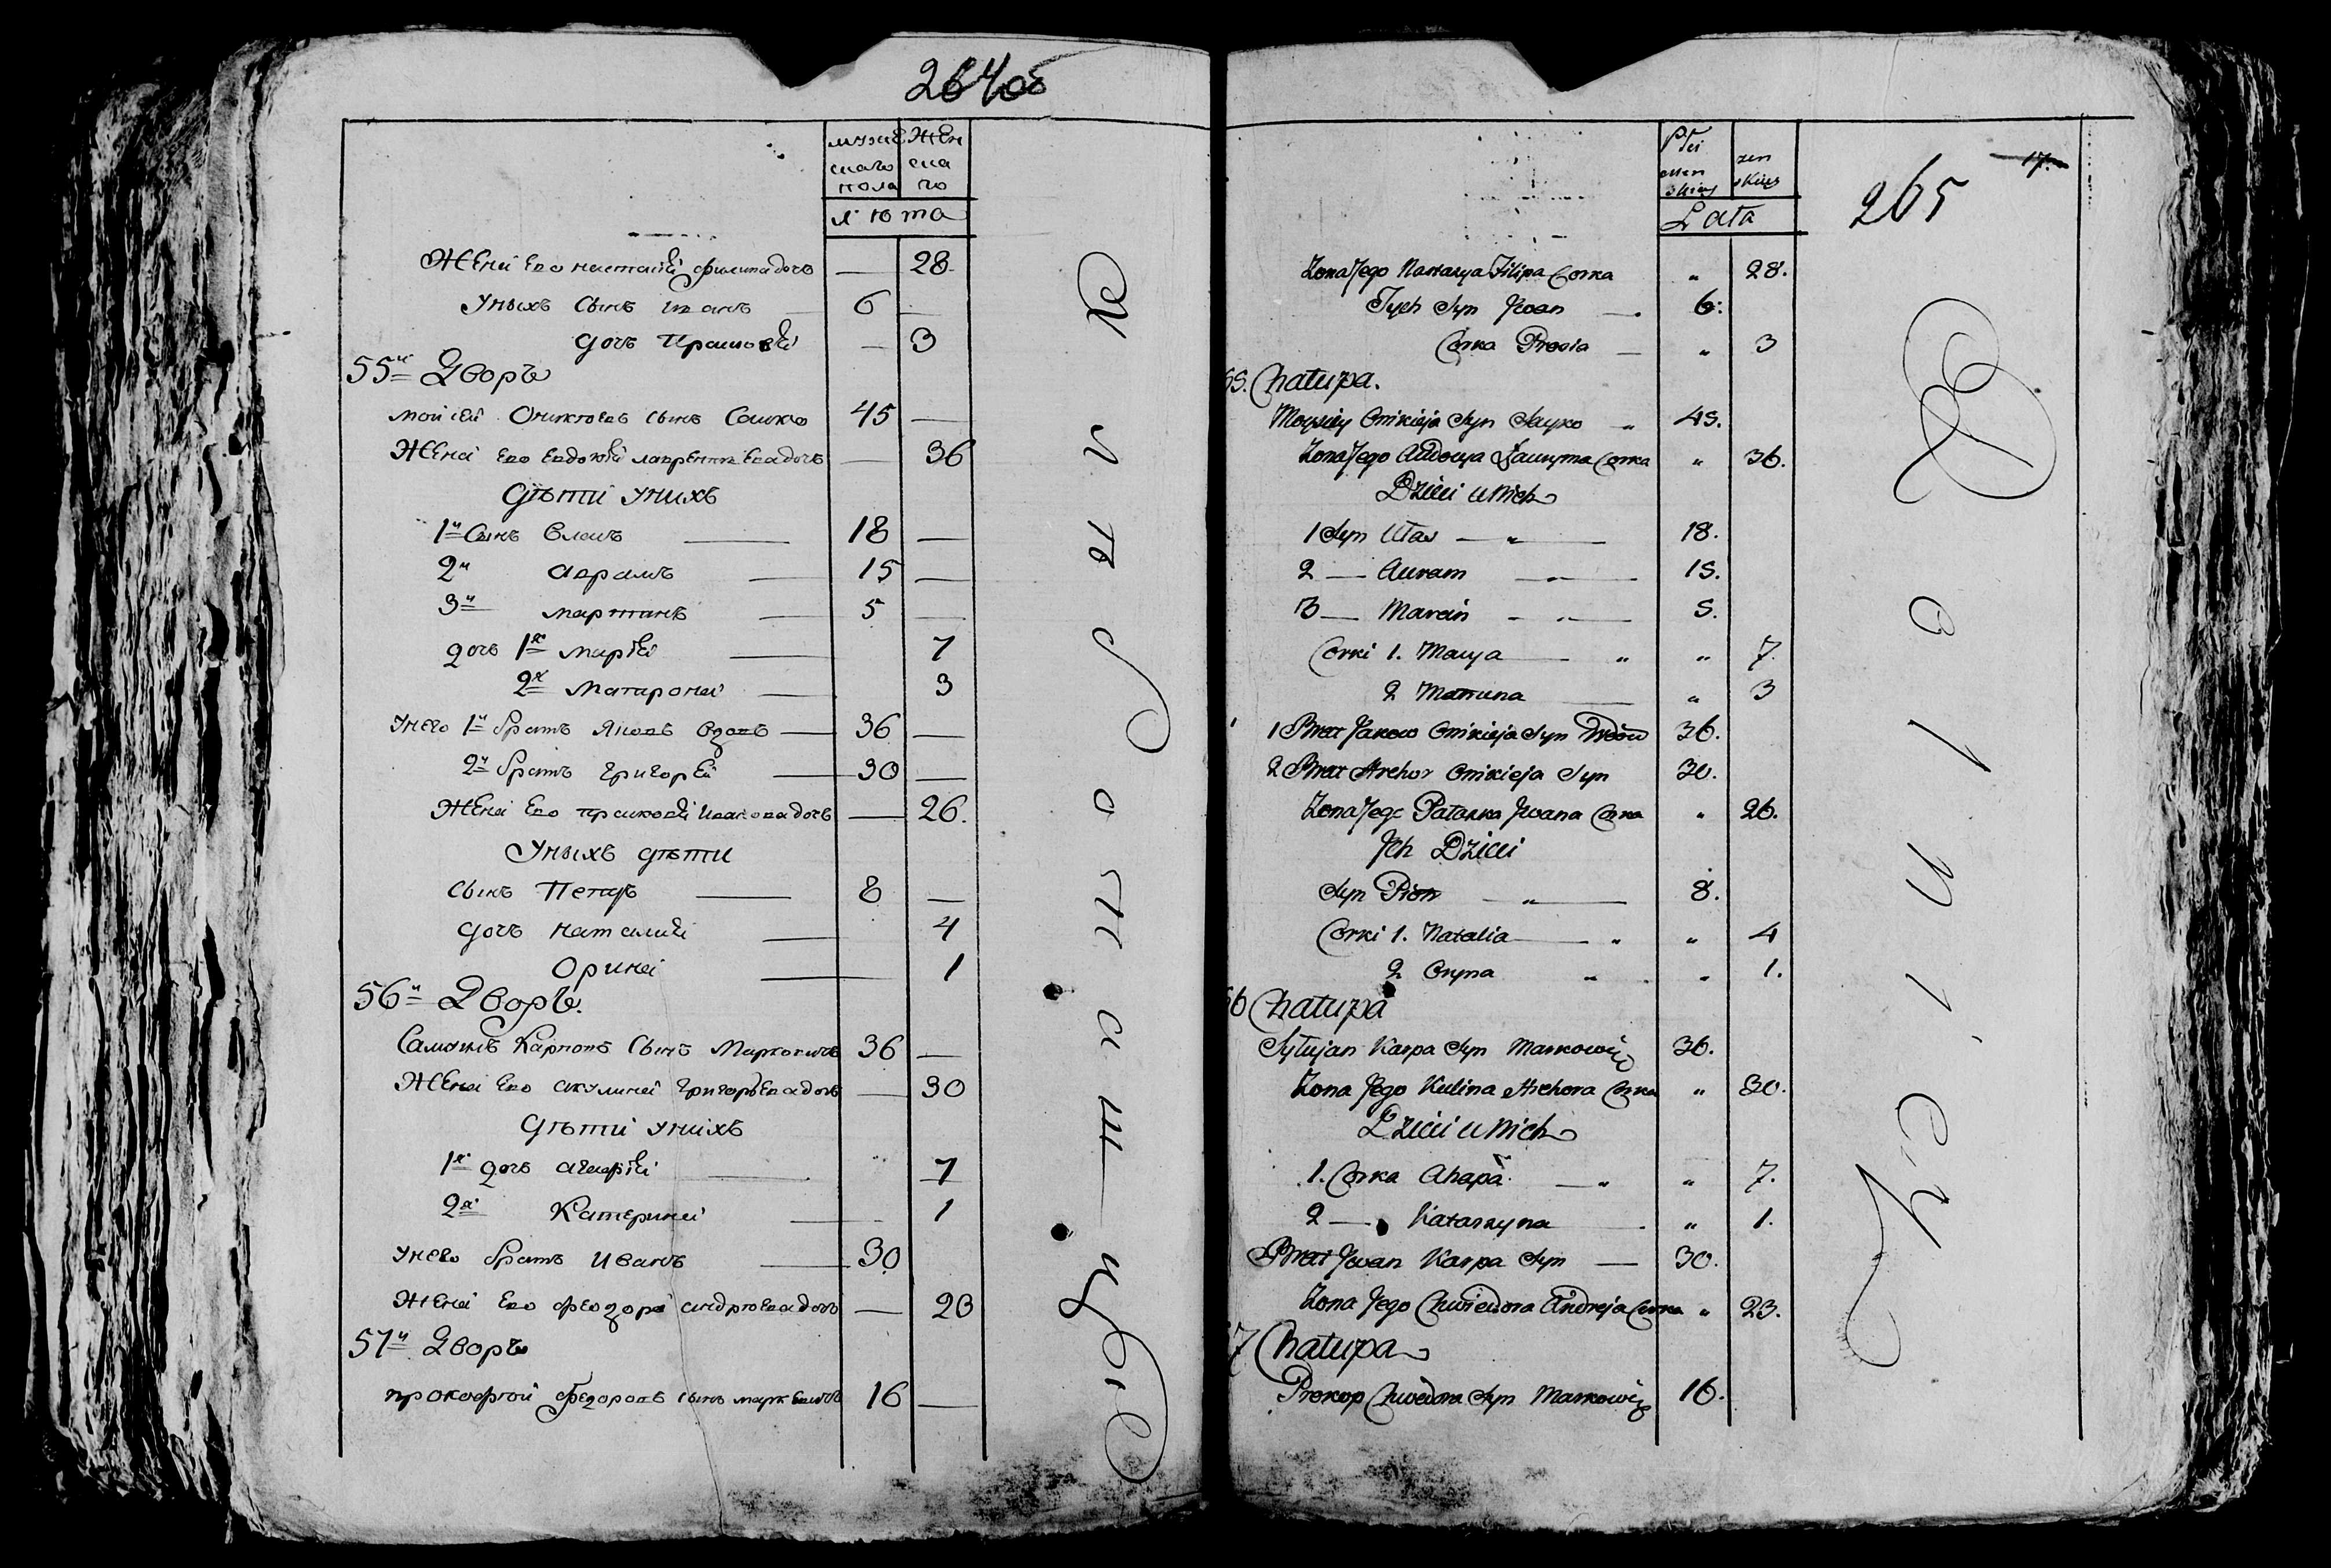 264об
мужескаго пола
женскаго
лѣта
Жена Его настасія филипадочь — 28
Унихъ Сынъ иванъ 6 —
дочь Прасковія — 3
55й Дворъ
моисей Оникіевъ сынъ Сачко 45 —
Жена Его Евдокія лаврентіевадочь — 36
Дѣти унихъ
1й Сынъ Власъ — 18 —
2й аврамъ — 15 —
3й мартинъ — 5 —
дочь 1я марія — 7
2я матарона — 3
унего 1й братъ Яковъ вдовъ — 36 —
2й братъ григорей — 30 —
Жена Его прасковія Ивановадочь — 26.
Унихъ дѣти
сынъ Петръ — 8 —
дочь наталия — 4
Орина — 1
56й Дворъ.
Карповъ Сынъ Марковичъ 36 —
Жена Его акулина григорьевадочь — 30
Дѣти унихъ
1я дочь агафія — 7
2я Катерина — 1
унего братъ Иванъ — 30
Жена Его феодора андрѣевадочь — 23
57й Дворъ
прокофій федоровъ сынъ маркевичъ 16 —
Płci
męzskiey
zenskiey
Lata
265
17.
Zona Jego Nastazya Filipa Corka „ 28.
Tych Syn Jwan — 6.
Corka Prosia — „ 3
55. Chatupa.
Moysiey Onikieja Syn Sayko „ 45.
Zona Jego Audocya Ławryna Corka „ 36.
Dzieci u Nich
1 Syn Ułas — „ — 18.
2 — Auram — „ — 15.
3 — Marcin — „ — 5.
Corki 1. Marya — „ „ 7.
2 Matruna — „ 3
1 Brat Jakow Onikieja Syn Wdow 36.
2 Brat Hrehor Onikieja Syn 30.
Zona Jego Pałaska Jwana Corka „ 26.
Jch Dzieci
Syn Piotr — „ — 8.
Corki 1. Natalia — „ „ 4
2 Oryna „ „ 1.
56 Chatupa
Karpa Syn Markowicz 36.
Zona Jego Kulina Hrehora Corka „ 30.
Dzieci u Nich
1. Corka Ahapa — „ „ 7.
2 — Katarzyna — „ 1.
Brat Jwan Karpa Syn — 30.
Zona Jego Chwiedora Andreja Corka „ 23.
57 Chatupa
Prokop Chwedora Syn Markowicz 16.